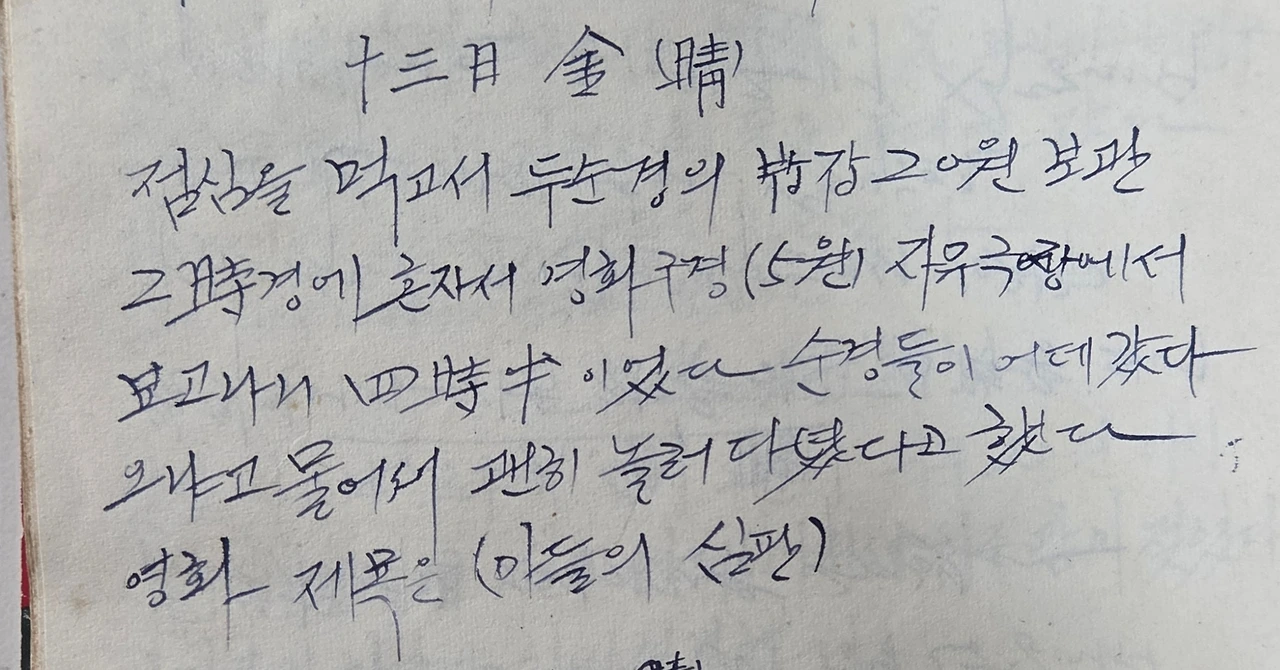 十三日 金 (晴)
점심을 먹고서 두순경의 20원 보관
그 時경에 혼자서 영화구경(5원) 자유극장에서
보고나니 四時半이었다 순경들이 어데 갔다
오냐고 물어서 괜히 놀러 다녔다고 했다
영화 제목은 (아들의 심판)